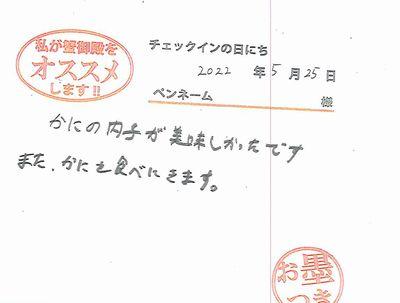 私が蟹御殿を
オススメ
します!!
チェックインの日にち
2022 年 5 月 25 日
ペンネーム 様
かにの内子が美味しかったです
また、かにを食べにきます。
お墨
つき